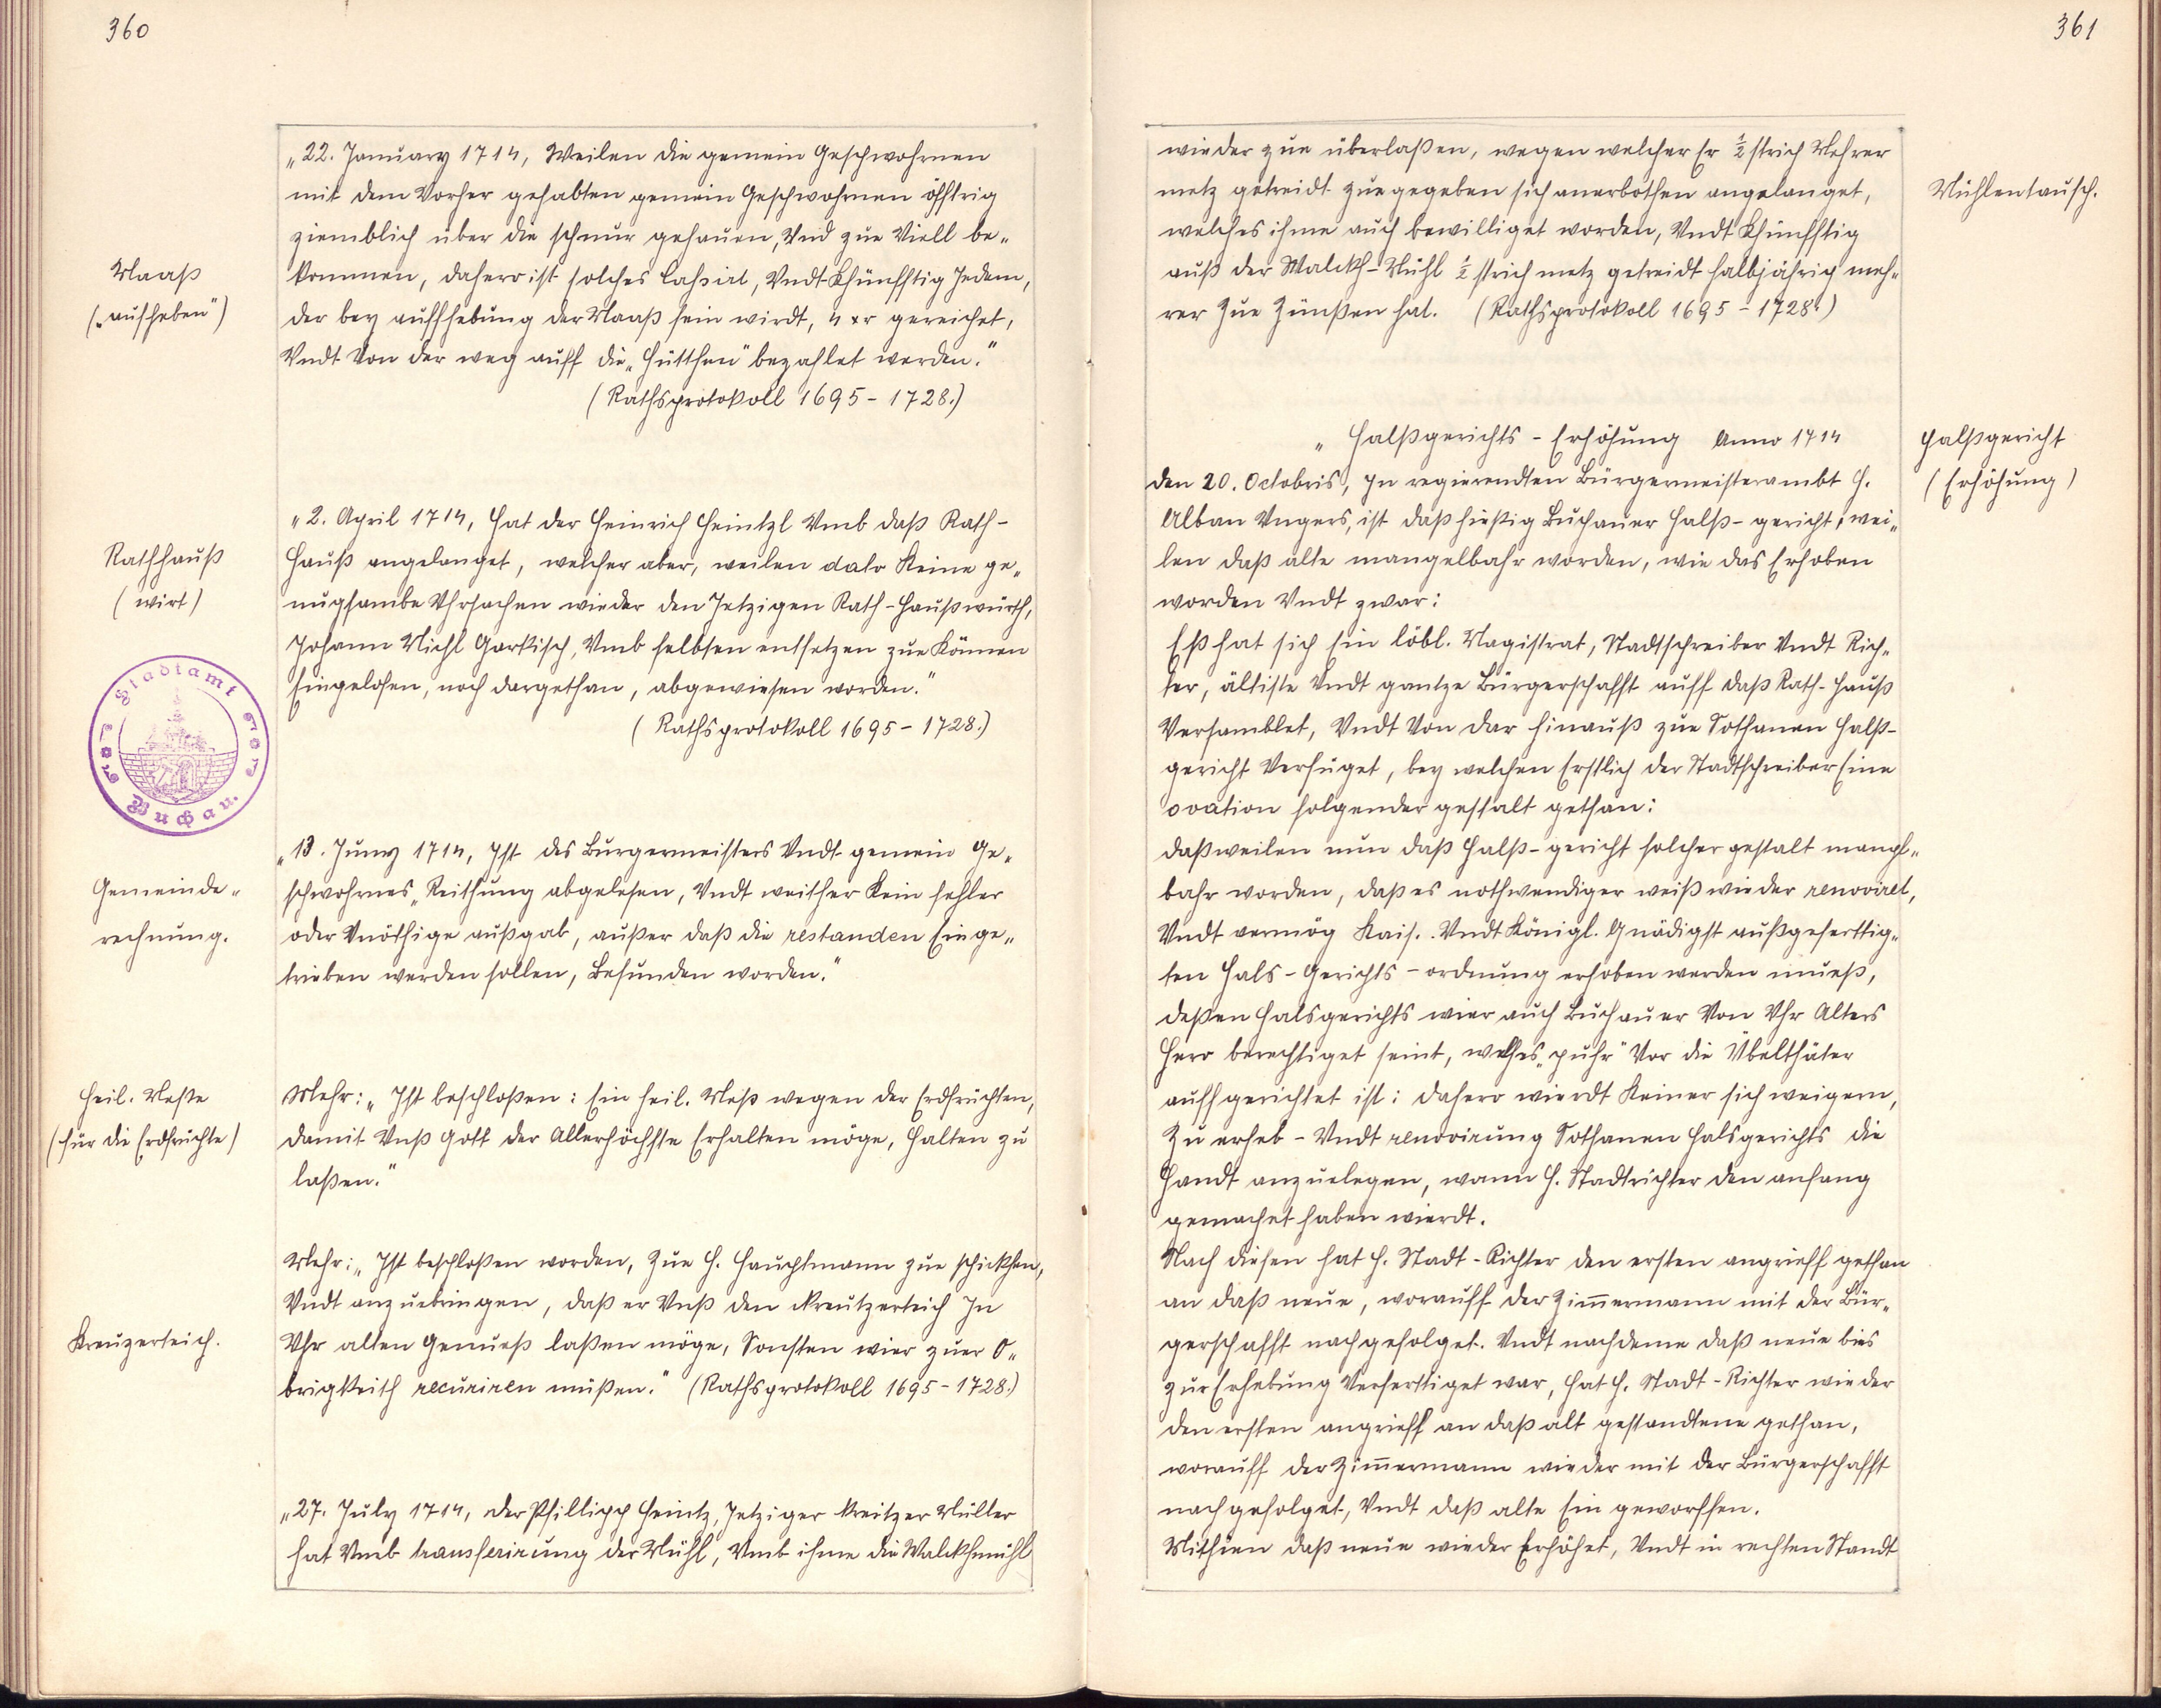 360
„22. January 1714, Weilen die gemein Geschwohrnen
mit dem Vorher gehabten gemein Geschwohrnen öfftrig
ziemblich über die schnur gehauen, Vnd zue Viell be„
Maaß
kommen, dahero ist solches Cahsirt, Vndt Khünfftig Jedem,
(„aufheben")
der bey auffhebung der Maaß sein wirdt, 4 xr gereichet,
Vndt Von der weg auff die „Hütthen" bezahlet werden."
(Rathsprotokoll 1695 - 1728.)
„2. April 1714, Hat der Heinrich Heintzl Vmb daß Rath-
Rathhauß
Hauß angelanget, welcher aber, weilen dato Keine ge„
(wirt)
nugsambe Vhrsachen wieder den Jetzigen Rath-Haußwürth,
Johann Michl Gorkisch, Vmb selbsten entsetzen zue Können
Eingelofen, noch dargethan, abgewiesen worden."
(Rathsprotokoll 1695 - 1728.)
Stadtamt der Stadt Buchau.
„13. Juny 1714, Ist des Burgermeisters Vndt gemein Ge„
Gemeinde„
schwohrnes „Reithung abgelesen, Vndt weither Kein fehler
rechnung.
oder Vnöthige außgab, außer daß die restanden Einge„
trieben werden sollen, Befunden worden."
Heil. Meße
Mehr: „Ist beschloßen: Ein heil. Meß wegen der Erdfrüchten,
(für die Erdfrüchte)
damit Vnß Gott der Allerhöchste Erhalten möge, Halten zu
laßen."
Mehr: „Ist beschloßen worden, Zue H. Hauchtmann zue schickhen,
Vndt anzuebringen, daß er Vnß den Kreutzerteich In
Kreuzerteich.
Vhr alten Genueß laßen möge, Sonsten wier zuer O„
brigkeith recuriren müßen." (Rathsprotokoll 1695 - 1728.)
„27. July 1714, der Phillipp Heintz, Jetziger Kreitzer Müller
hat Vmb transferirung der Mühl, Vmb ihme die Walckhmühl
361
wieder zue überlaßen, wegen welcher Er ½ strich Mehrer
metz getreidt zuegegeben sich anerbothen angelanget,
Mühlentausch.
welches ihme auch bewilliget worden, Vndt Khünfftig
auß der Walckh-Mühl ½ strich metz getreidt halbjährig meh„
rer Zue Zünßen hat. (Rathsprotokoll 1695 - 1728.)
„Halßgerichts - Erhöhung Anno 1714
Halßgericht
den 20. Octobris, In regierendten Bürgermeisterambt H.
(Erhöhung)
Alban Vngers, ist daß hießig Buchauer Halß-gericht, wei„
len daß alte mangelbahr worden, wie das Erhoben
worden Vndt zwar:
Eß hat sich Ein löbl. Magistrat, Stadtschreiber Vndt Rich„
ter, ältiste Vndt gantze Bürgerschafft auff daß Rath-Hauß
Versamblet, Vndt Von dar hinauß zue Sothanen Halß-
gericht Verfuget, bey welchen Erstlich der Stadtschreiber Eine
oration folgender gestalt gethan:
daß weilen nun daß Halß-gericht solcher gestalt mangl„
bahr worden, daß es nothwendiger weiß wieder renoviret,
Vndt vermög Kais. Vndt Königl. Gnädigst außgeferttig„
ten Hals-Gerichts-ordnung erhoben werden mueß,
deßen Halsgerichts wier auch Buchauer Von Vhr Alters
Hero berechtiget seint, welches „puhr" Vor die Übelthäter
auffgerichtet ist: dahero wierdt Keiner sich weigern,
Zu erheb- Vndt renovirung Sothanen Halsgerichts die
Handt anzuelegen, wann H. Stadtrichter den anfang
gemachet haben wierdt.
Nach diesen hat H. Stadt-Richter den ersten angrieff gethan
an daß neue, worauff der Zimmermann mit der Bür„
gerschafft nachgefolget. Vndt nachdeme daß neue bies
zur Erhebung Verferttiget war, hat H. Stadt-Richter wieder
den ersten angrieff an daß alt gestandtene gethan,
worauff der Zimmermann wieder mit der Bürgerschafft
nachgefolget, Vndt daß alte Ein geworffen.
Mithien daß neue wieder Erhöhet, Vndt in rechten Standt